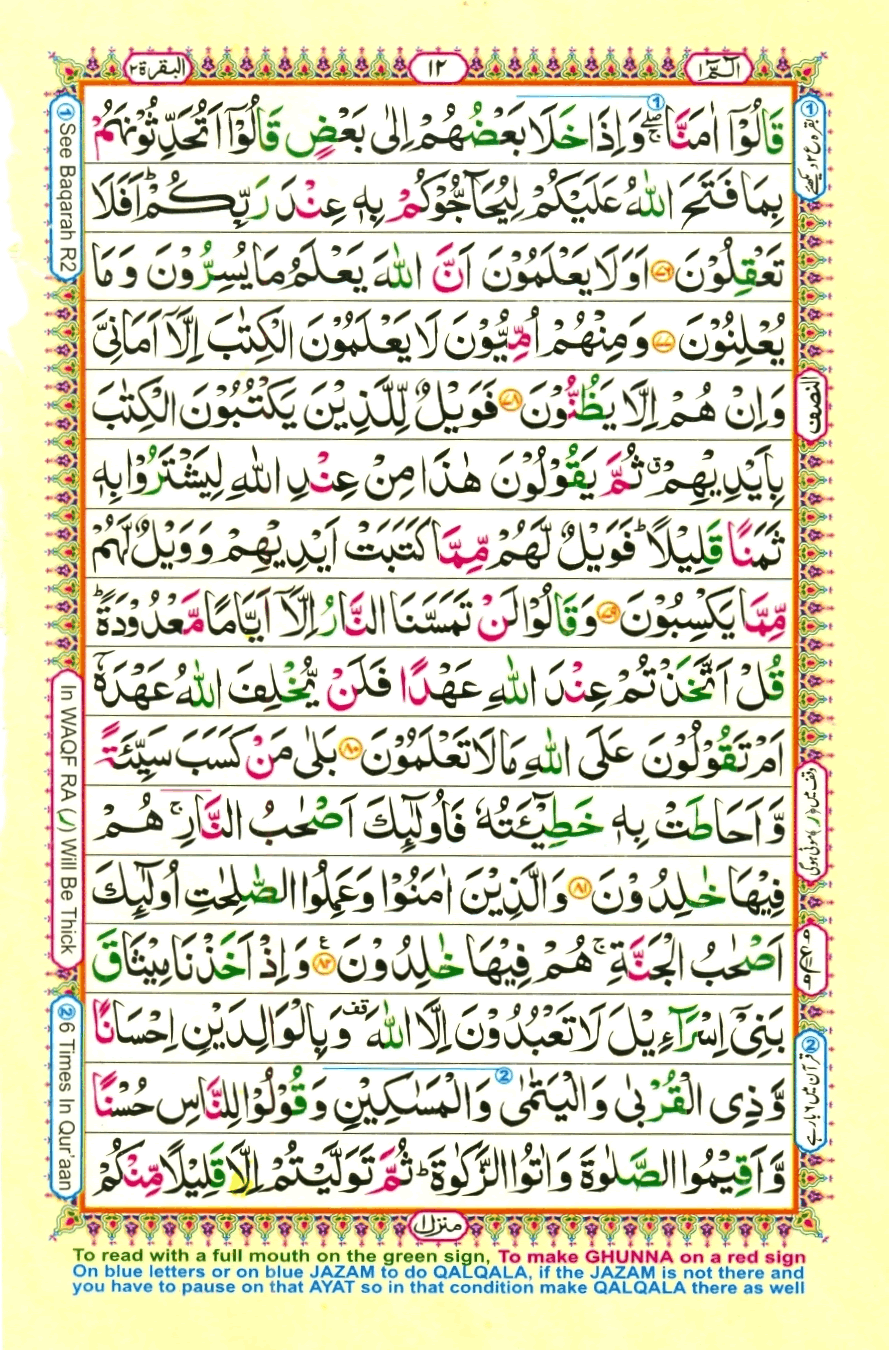 الٓمّٓ ١
١٢
البقرة ٢
قَالُوْٓا اٰمَنَّا ۖۚ وَاِذَا خَلَا بَعْضُهُمْ اِلٰى بَعْضٍ قَالُوْٓا اَتُحَدِّثُوْنَهُمْ
بِمَا فَتَحَ اللّٰهُ عَلَيْكُمْ لِيُحَآجُّوْكُمْ بِهٖ عِنْدَ رَبِّكُمْ ؕ اَفَلَا
تَعْقِلُوْنَ ﴿۷۶﴾ اَوَلَا يَعْلَمُوْنَ اَنَّ اللّٰهَ يَعْلَمُ مَا يُسِرُّوْنَ وَمَا
يُعْلِنُوْنَ ﴿۷۷﴾ وَمِنْهُمْ اُمِّيُّوْنَ لَا يَعْلَمُوْنَ الْكِتٰبَ اِلَّآ اَمَانِيَّ
وَاِنْ هُمْ اِلَّا يَظُنُّوْنَ ﴿۷۸﴾ فَوَيْلٌ لِّلَّذِيْنَ يَكْتُبُوْنَ الْكِتٰبَ
بِاَيْدِيْهِمْ ۗ ثُمَّ يَقُوْلُوْنَ هٰذَا مِنْ عِنْدِ اللّٰهِ لِيَشْتَرُوْا بِهٖ
ثَمَنًا قَلِيْلًا ؕ فَوَيْلٌ لَّهُمْ مِّمَّا كَتَبَتْ اَيْدِيْهِمْ وَوَيْلٌ لَّهُمْ
مِّمَّا يَكْسِبُوْنَ ﴿۷۹﴾ وَقَالُوْا لَنْ تَمَسَّنَا النَّارُ اِلَّآ اَيَّامًا مَّعْدُوْدَةً ؕ
قُلْ اَتَّخَذْتُمْ عِنْدَ اللّٰهِ عَهْدًا فَلَنْ يُّخْلِفَ اللّٰهُ عَهْدَهٗٓ
اَمْ تَقُوْلُوْنَ عَلَى اللّٰهِ مَا لَا تَعْلَمُوْنَ ﴿۸۰﴾ بَلٰى مَنْ كَسَبَ سَيِّئَةً
وَّاَحَاطَتْ بِهٖ خَطِيْٓئَتُهٗ فَاُولٰٓئِكَ اَصْحٰبُ النَّارِ ۚ هُمْ
فِيْهَا خٰلِدُوْنَ ﴿۸۱﴾ وَالَّذِيْنَ اٰمَنُوْا وَعَمِلُوا الصّٰلِحٰتِ اُولٰٓئِكَ
اَصْحٰبُ الْجَنَّةِ ۚ هُمْ فِيْهَا خٰلِدُوْنَ ﴿۸۲﴾ ع وَاِذْ اَخَذْنَا مِيْثَاقَ
بَنِيْٓ اِسْرَآءِيْلَ لَا تَعْبُدُوْنَ اِلَّا اللّٰهَ قف وَبِالْوَالِدَيْنِ اِحْسَانًا
وَّذِي الْقُرْبٰى وَالْيَتٰمٰى وَالْمَسٰكِيْنِ وَقُوْلُوْا لِلنَّاسِ حُسْنًا
وَّاَقِيْمُوا الصَّلٰوةَ وَاٰتُوا الزَّكٰوةَ ؕ ثُمَّ تَوَلَّيْتُمْ اِلَّا قَلِيْلًا مِّنْكُمْ
النصف
① See Baqarah R2
In WAQF RA (ر) Will Be Thick
② 6 Times In Qur'aan
منزل ١
To read with a full mouth on the green sign, To make GHUNNA on a red sign
On blue letters or on blue JAZAM to do QALQALA, if the JAZAM is not there and
you have to pause on that AYAT so in that condition make QALQALA there as well